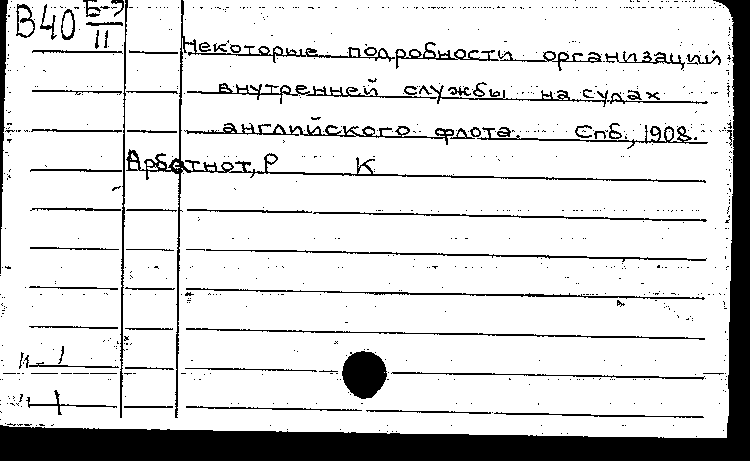 В40 Б-9/11
Некоторые подробности организаций
внутренней службы на судах
английского флота. Спб., 1908.
Арбатнот, Р К
и-1
и 1